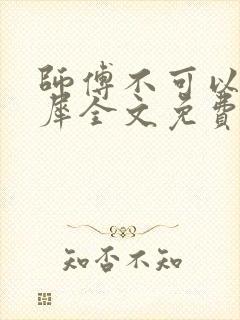 師傅不可以
犀全文免費
知否不知